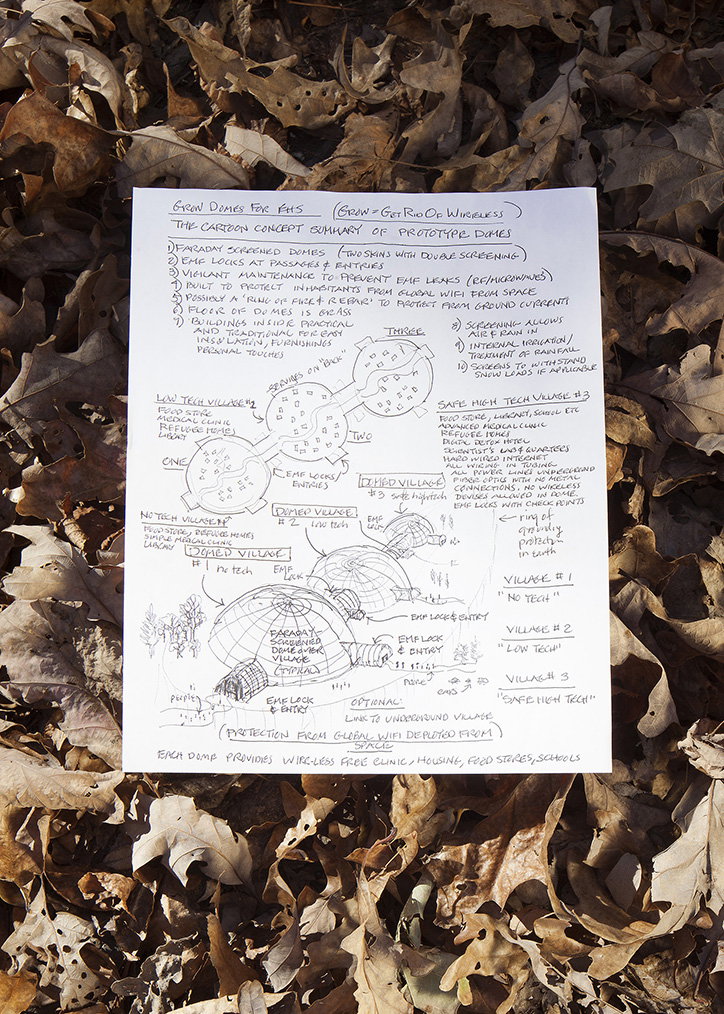 GROW DOMES FOR EHS (GROW = GET RID OF WIRELESS)
THE CARTOON CONCEPT SUMMARY OF PROTOTYPE DOMES
1) FARADAY SCREENED DOMES (TWO SKINS WITH DOUBLE SCREENING)
2) EMF LOCKS AT PASSAGES & ENTRIES
3) VIGILANT MAINTENANCE TO PREVENT EMF LEAKS (RF/MICROWAVES)
4) BUILT TO PROTECT INHABITANTS FROM GLOBAL WIFI FROM SPACE
5) POSSIBLY A "RING OF FIRE & REPAIR" TO PROTECT FROM GROUND CURRENTS
6) FLOOR OF DOMES IS GRASS
7) BUILDINGS INSIDE PRACTICAL
AND TRADITIONAL FOR EASY
INSULATION, FURNISHINGS
PERSONAL TOUCHES
8) SCREENING ALLOWS
AIR & RAIN IN
9) INTERNAL IRRIGATION/
TREATMENT OF RAINFALL
10) SCREENS TO WITHSTAND
SNOW LOADS IF APPLICABLE
THREE
SERVICES ON "BACK"
LOW TECH VILLAGE #2
FOOD STORE
MEDICAL CLINIC
REFUGEE HOMES
LIBRARY
TWO
ONE
EMF LOCKS
ENTRIES
SAFE HIGH TECH VILLAGE #3
FOOD STORE, LIBRARY, SCHOOL ETC
ADVANCED MEDICAL CLINIC
REFUGEE HOMES
DIGITAL DETOX HOTEL
SCIENTIST'S LAB & QUARTERS
HARD WIRED INTERNET
ALL WIRING IN TUBING
ALL POWER LINES UNDERGROUND
FIBER OPTIC WITH NO METAL
CONNECTIONS. NO WIRELESS
DEVISES ALLOWED IN DOME.
EMF LOCKS WITH CHECK POINTS
NO TECH VILLAGE
FOOD STORE, REFUGEE HOMES
SIMPLE MEDICAL CLINIC
LIBRARY
DOMED VILLAGE
#3 safe high tech
DOMED VILLAGE
#2 low tech
EMF
LOCK
DOMED VILLAGE
#1 no tech
EMF
LOCK
ring of
grounding
protection
in earth
EMF LOCK & ENTRY
EMF LOCK
& ENTRY
FARADAY
SCREENED
DOME OVER
VILLAGE
(TYPICAL)
VILLAGE #1
"NO TECH"
VILLAGE #2
"LOW TECH"
VILLAGE #3
"SAFE HIGH TECH"
PEOPLE
EMF LOCK
& ENTRY
PEOPLE
CARS
OPTIONAL:
LINK TO UNDERGROUND VILLAGE
(PROTECTION FROM GLOBAL WIFI DEPLOYED FROM
SPACE)
EACH DOME PROVIDES WIRE-LESS FREE CLINIC, HOUSING, FOOD STORES, SCHOOLS